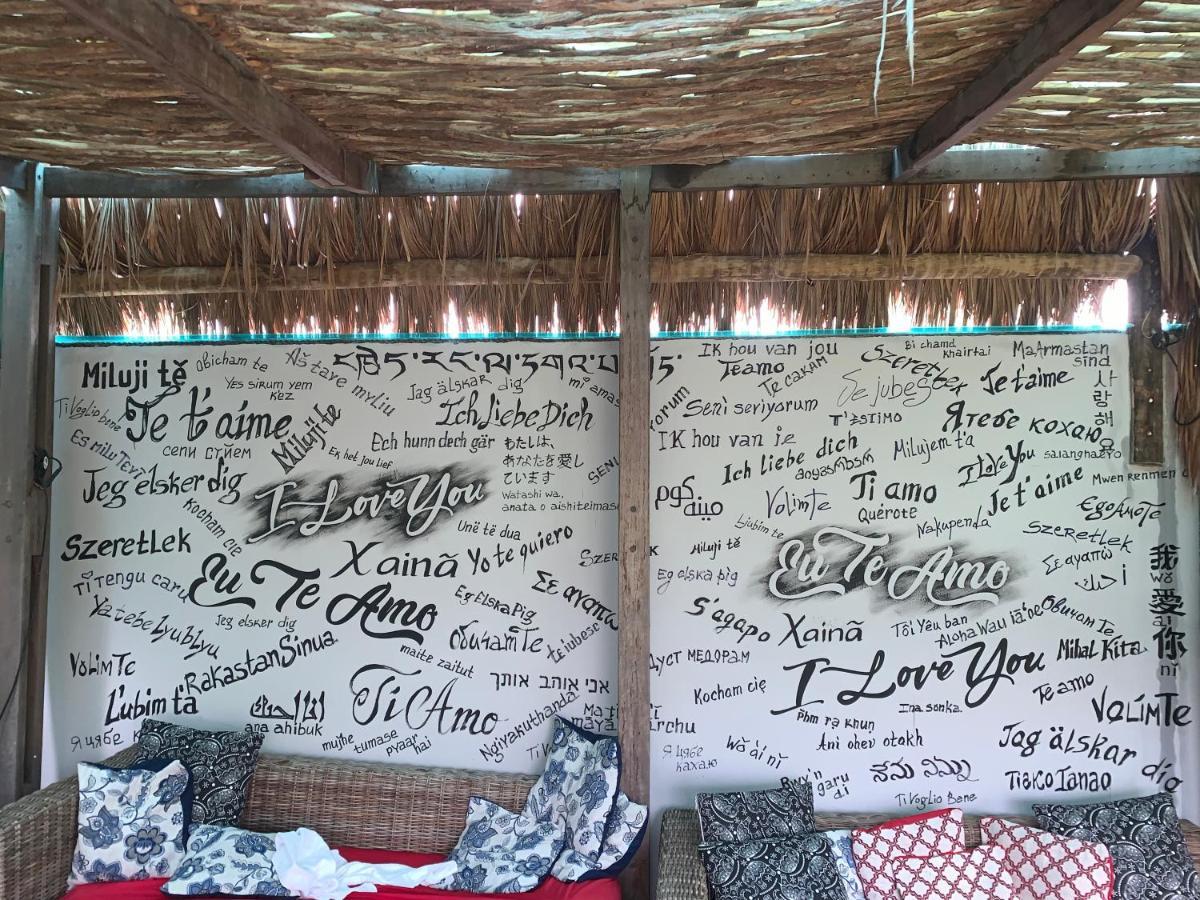 Miluji tě
Obicham te
Aš tave myliu
Yes sirum yem
kez
Jag älskar dig
mi amas
Ti Voglio bene
Je t'aime
Miluji te
Ich Liebe Dich
Es milu Tevi
сепи сүйем
Ech hunn dech gär
Ek het jou lief
わたしは、
あなたを愛し
ています
Watashi wa,
anata o aishiteimasu
SENI
Jeg elsker dig
I Love You
Kocham cie
Unë të dua
SzeretLek
Xainã
Yo te quiero
Szer
Ti Tengu caru
Eu Te Amo
Eg Elska Pig
Σε αγαπώ
Ya tebe Lyublyu
Jeg elsker dig
Обичам Те
te iubesc
VoLim Te
Rakastan Sinua
maite zaitut
L'ubim ta
Ti Amo
אני אוהב אותך
ana ahibuk
Ngiyakuthanda
mujhe
tumase
pyaar
hai
IK hou van jou
Te amo
Te сакам
Szeretlek
Bi chamd
khairtai
Ma Armastan
sind
Je t'aime
사
랑
해
orum
Seni seviyorum
Se jubeş
T'ESTIMO
Я тебе кохаю
IK hou van je
Ich liebe dich
Milujem t'a
I Love You
salanghaeyo
Mwen renmen
Volim Te
Ti amo
Quérote
Je t'aime
Ego Amo Te
Ljubim te
Nakupenda
Szeretlek
Miluji tě
Eg elska þig
Eu Te Amo
Σε αγαπώ
S'agapo
Xainã
Tôi Yêu ban
Aloha Wau iā 'oe
Обичам Те
我
wǒ
愛
ài
你
nǐ
дуст медорам
I Love You
Mihal Kita
Kocham cię
Te amo
VoLim Te
Phm rạ khun
Ina sonka
Ani ohev otakh
Jag älskar dig
Wǒ ài nǐ
Rwy'n
garu
di
నేను నిన్ను
Tiako Ianao
Ti Voglio Bene